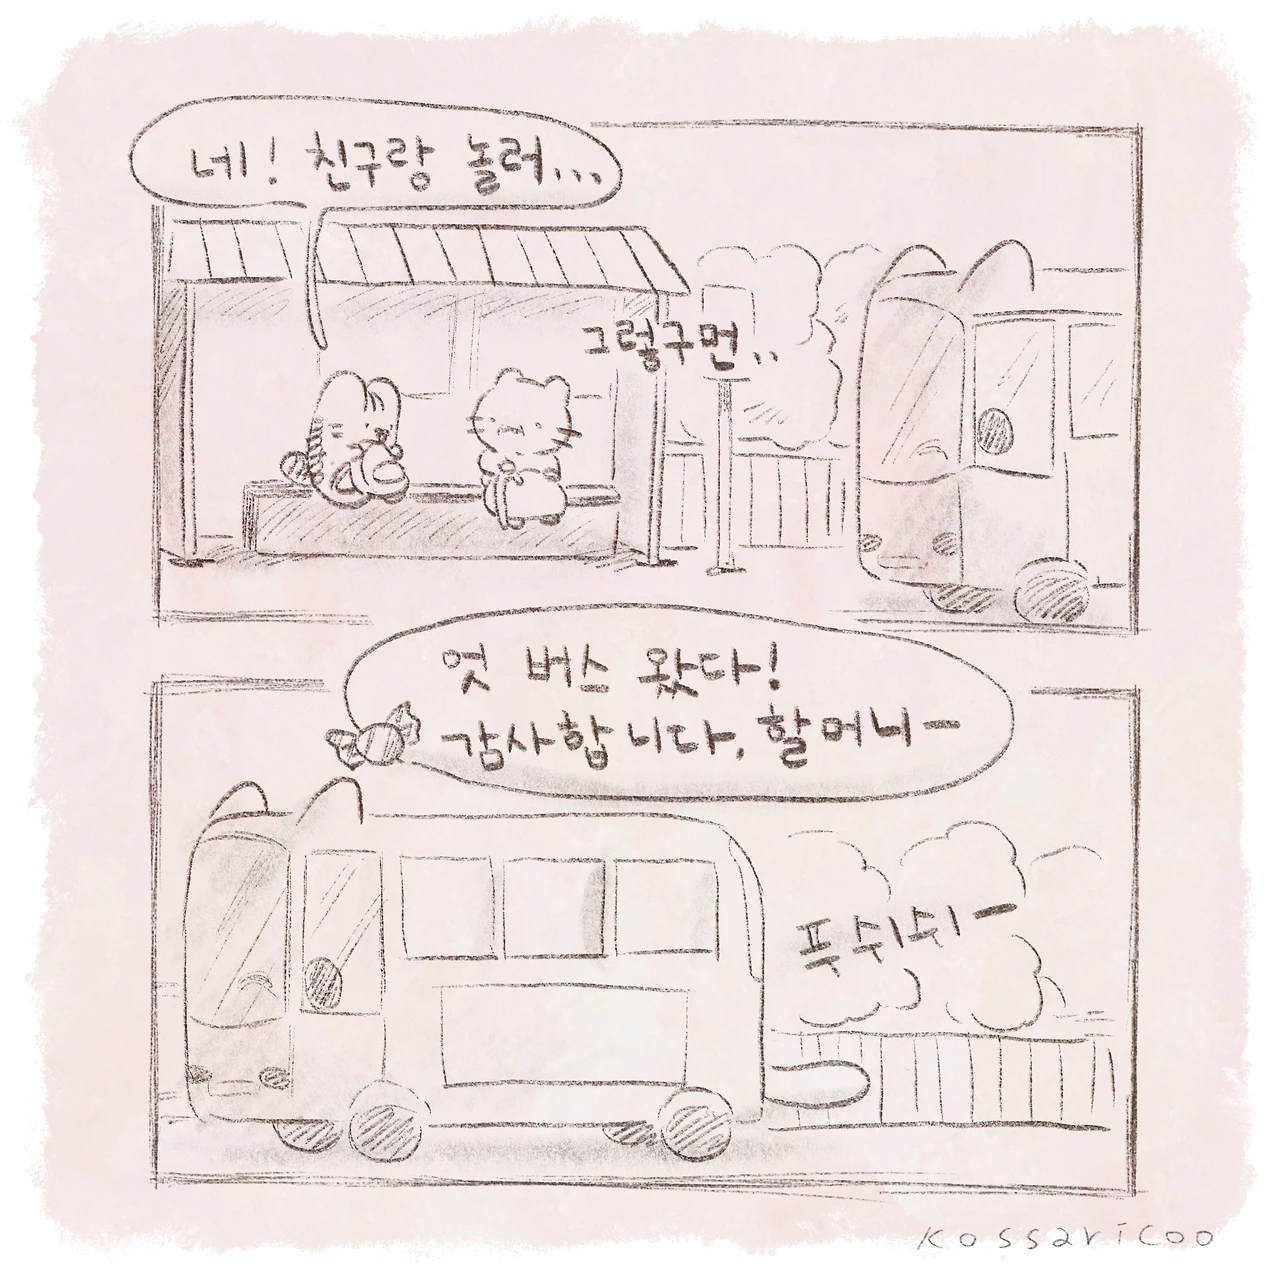 네! 친구랑 놀러...
그렇구먼..
엇 버스 왔다!
감사합니다, 할머니ー
푸쉬쉬ー
kossaricoo